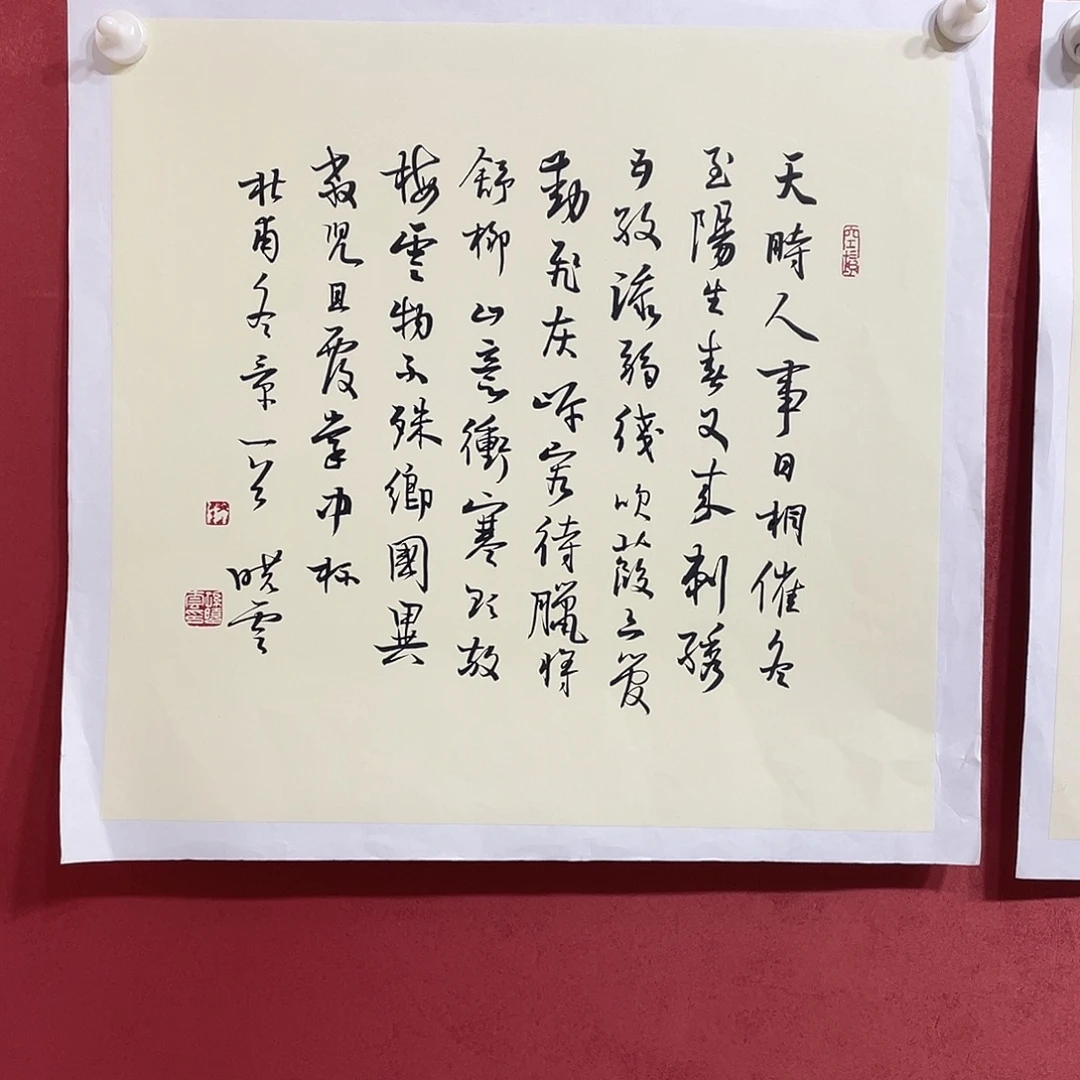 天時人事日相催冬
至陽生春又來刺繡
五紋添弱綫吹葭六管
動飛灰岸容待臘將
舒柳山意衝寒欲放
梅雲物不殊鄉國異
教兒且覆掌中杯
杜甫冬景一首 曉雲